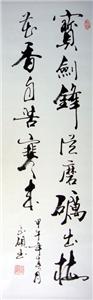 寶劍鋒從磨礪出梅
花香自苦寒來
甲午年